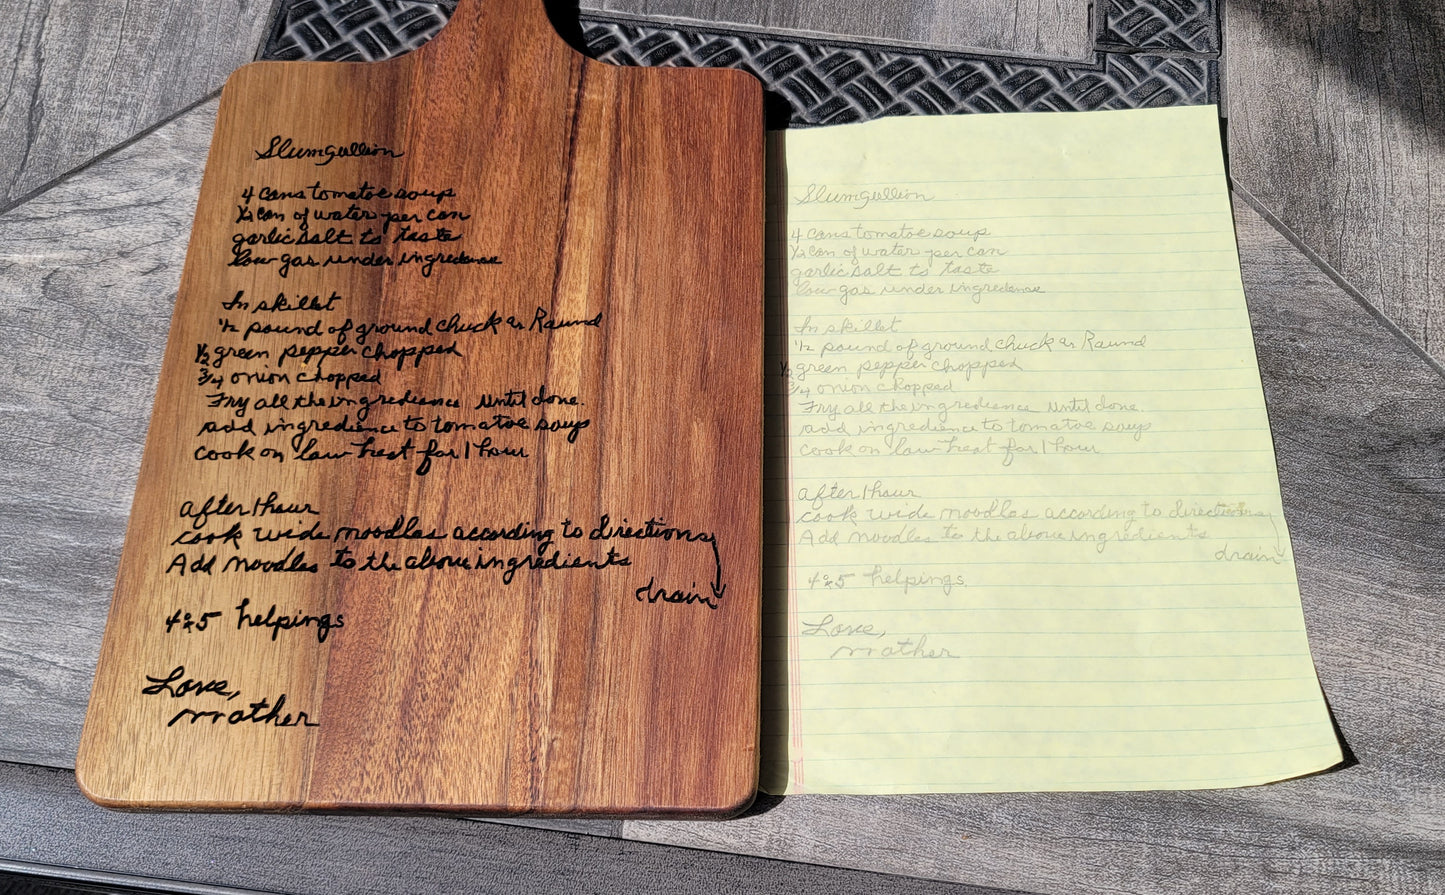 Slumgullion
4 cans tomatoe soup
1/2 can of water per can
garlic salt to taste
low gas under ingredience
In skillet
1/2 pound of ground chuck or Raund
1/2 green pepper chopped
3/4 onion chopped
Fry all the ingredience until done.
add ingredience to tomatoe soup
cook on low heat for 1 hour
after 1 hour
cook wide noodles according to directions
Add noodles to the above ingredients
drain
4 or 5 helpings
Love,
mother
Slumgullion
4 cans tomatoe soup
1/2 can of water per can
garlic salt to taste
low gas under ingredience
In skillet
1/2 pound of ground chuck or Raund
1/2 green pepper chopped
3/4 onion chopped
Fry all the ingredience until done.
add ingredience to tomatoe soup
cook on low heat for 1 hour
after 1 hour
cook wide noodles according to directions
Add noodles to the above ingredients
drain
4 or 5 helpings
Love,
mother